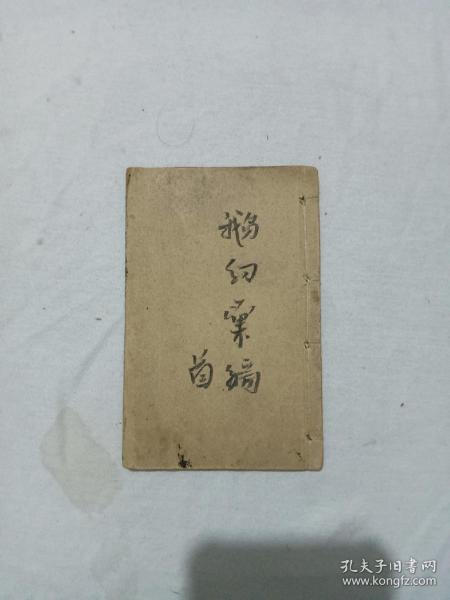 鵝幻彙編
首
孔夫子旧书网
www.kongfz.com